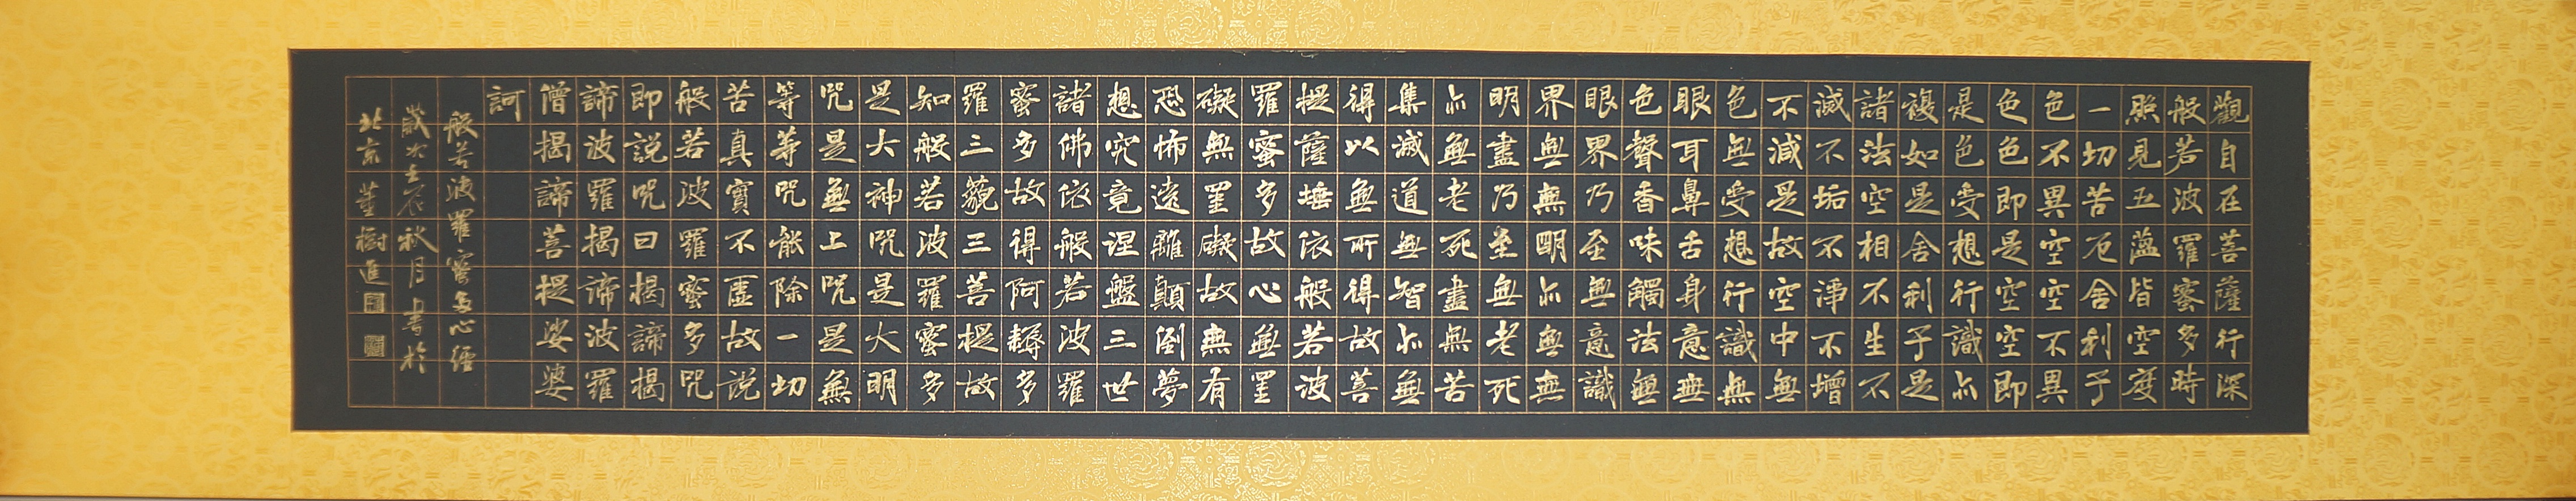 觀自在菩薩行深
般若波羅蜜多時
照見五蘊皆空度
一切苦厄舍利子
色不異空空不異
色色即是空空即
是色受想行識亦
複如是舍利子是
諸法空相不生不
滅不垢不淨不增
不減是故空中無
色無受想行識無
眼耳鼻舌身意無
色聲香味觸法無
眼界乃至無意識
界無無明亦無無
明盡乃至無老死
亦無老死盡無苦
集滅道無智亦無
得以無所得故菩
提薩埵依般若波
羅蜜多故心無罣
礙無罣礙故無有
恐怖遠離顛倒夢
想究竟涅盤三世
諸佛依般若波羅
蜜多故得阿耨多
羅三藐三菩提故
知般若波羅蜜多
是大神咒是大明
咒是無上咒是無
等等咒能除一切
苦真實不虛故說
般若波羅蜜多咒
即說咒曰揭諦揭
諦波羅揭諦波羅
僧揭諦菩提娑婆
訶
般若波羅蜜多心經
歲次壬辰秋月書於
北京董樹進